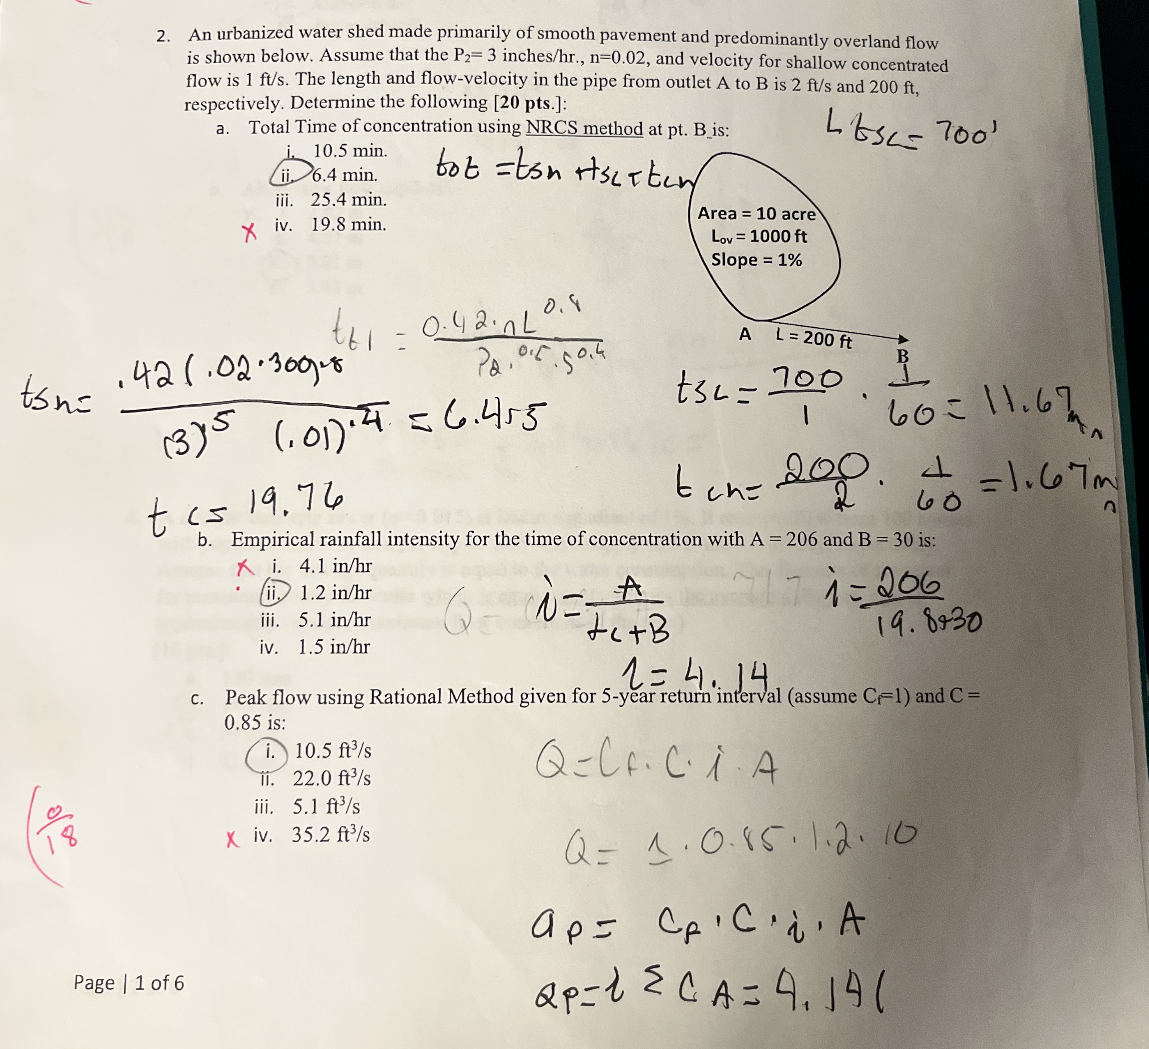 2. An urbanized water shed made primarily of smooth pavement and predominantly overland flow
is shown below. Assume that the P₂= 3 inches/hr., n=0.02, and velocity for shallow concentrated
flow is 1 ft/s. The length and flow-velocity in the pipe from outlet A to B is 2 ft/s and 200 ft,
respectively. Determine the following [20 pts.]:
a. Total Time of concentration using NRCS method at pt. B is:
L tsc = 700'
i. 10.5 min.
ii. 6.4 min.
iii. 25.4 min.
x iv. 19.8 min.
tot = tsn + tsc + tcn
Area = 10 acre
Lov = 1000 ft
Slope = 1%
A L = 200 ft
B
tt1 = 0.42 · nL^0.8
P2^0.5 · S^0.4
tsn = .42 (.02·300)^.8
(3)^.5 (.01)^.4 = 6.455
tsc = 700/1 · 1/60 = 11.67 min
tch = 200/2 · 1/60 = 1.67 min
tc = 19.76
b. Empirical rainfall intensity for the time of concentration with A = 206 and B = 30 is:
x i. 4.1 in/hr
ii. 1.2 in/hr
iii. 5.1 in/hr
iv. 1.5 in/hr
i = A
tc+B
i = 206
19.8+30
i = 4.14
c. Peak flow using Rational Method given for 5-year return interval (assume Cf=1) and C =
0.85 is:
i. 10.5 ft³/s
ii. 22.0 ft³/s
iii. 5.1 ft³/s
x iv. 35.2 ft³/s
Q = Cf · C · i · A
Q = 1 · 0.85 · 1.2 · 10
0/18
Qp = Cf · C · i · A
Qp = i Σ C A = 4.14 (
Page | 1 of 6